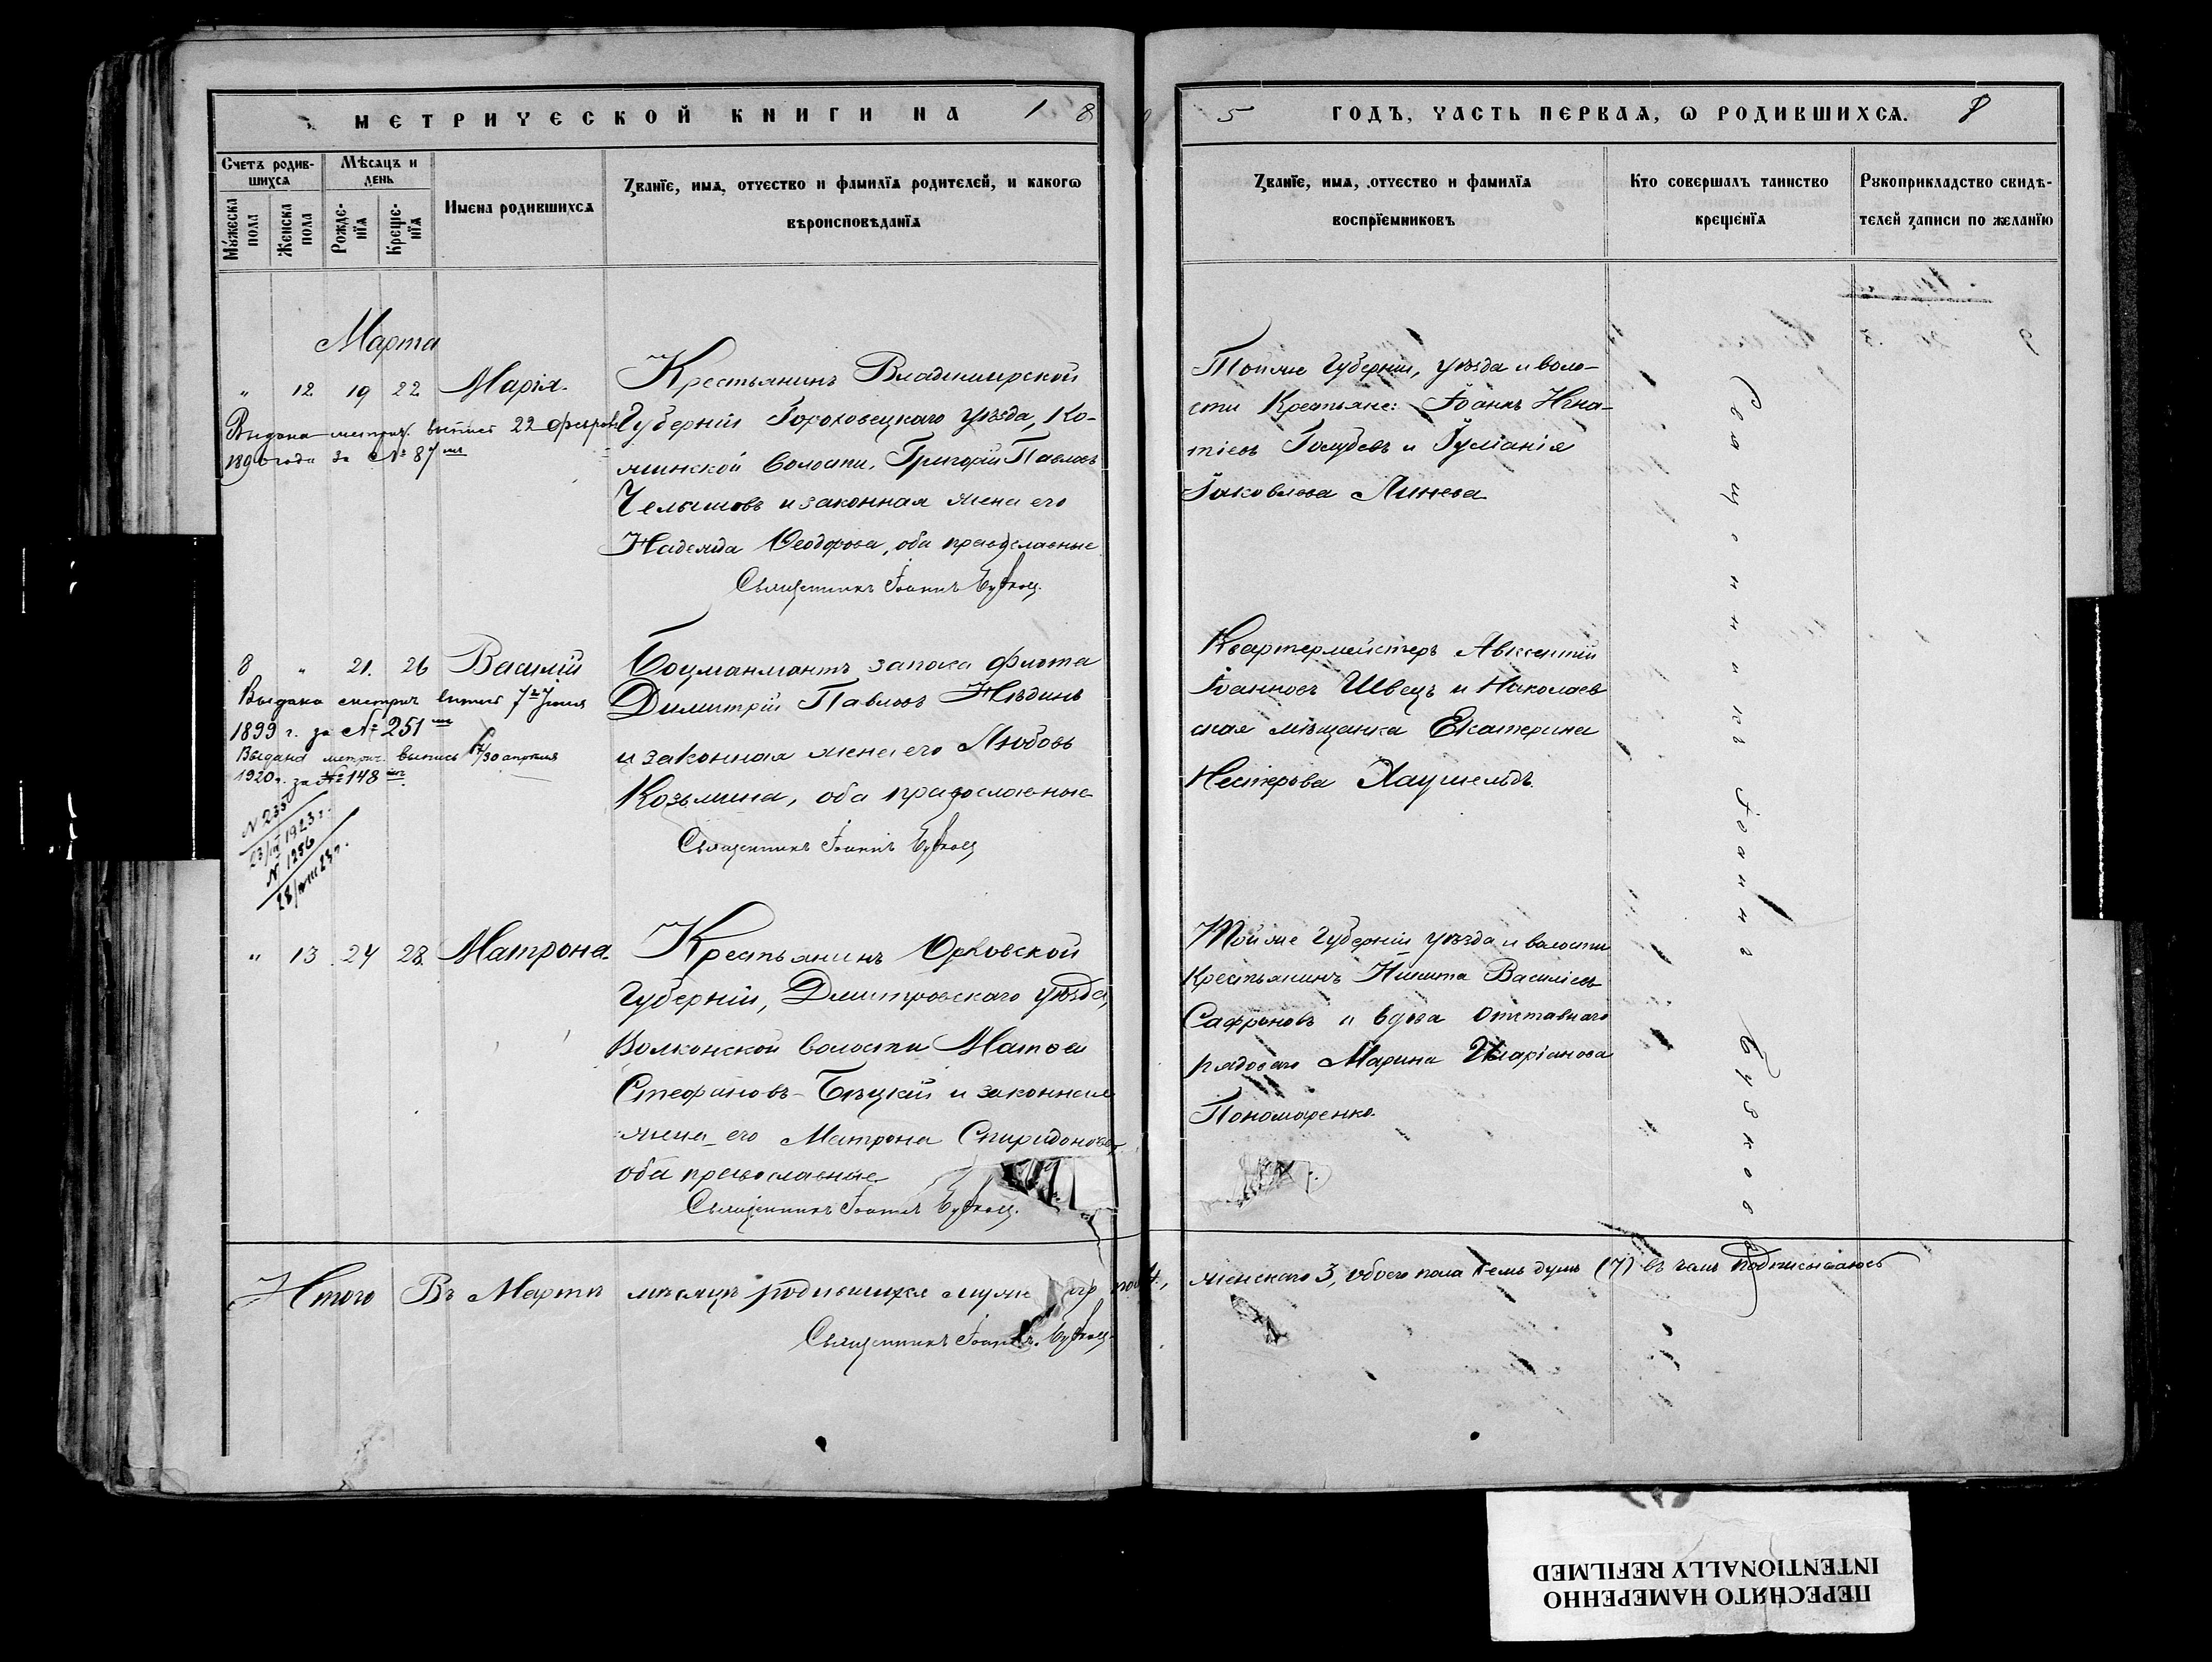 МЕТРИЧЕСКОЙ КНИГИ НА 1 8
5 ГОДЪ, ЧАСТЬ ПЕРВАЯ, Ѡ РОДИВШИХСЯ. 8
Счетъ родив-
шихся
Мѣсяцъ и
день
Мужеска
пола
Женска
пола
Рожде-
нїя
Креще-
нїя
Имена родившихся
Званїе, имя, отчество и фамилїя родителей, и какогѡ
вѣроисповѣданїя
Званїе, имя, отчество и фамилїя
воспрїемниковъ
Кто совершалъ таинство
крещенїя
Рукоприкладство свидѣ-
телей записи по желанїю
Марта
„ 12 19 22 Марія.
Выдана метрич. выпись 22 феврал
1896 года за № 87
Крестьянинъ Владимирской
Губерніи Гороховецкаго уѣзда, Ко-
минской волости, Григорій Павловъ
Челышовъ и законная жена его
Надежда Ѳеодорова, оба православные
Священникъ Іоаннъ
Тойже Губерніи, уѣзда и воло-
сти Крестьяне: Іоаннъ Игна-
тіевъ Голубевъ и Іуліанія
Іаковлева Линева
8 „ 21. 26 Василій
Выдана метрич. выпись 7го Іюня
1899 г. за № 251
Выдана метрич. выпись 17/30 апреля
1920 г. за № 148
N 235
1923 г.
N 1256
28/VIII 23 г.
Боцманматъ запаса флота
Димитрій Павловъ
и законная жена его Любовь
Козьмина, оба православные
Священникъ Іоаннъ
Квартермейстеръ Авксентій
Іоанновъ Швецъ и Николаев
ская мѣщанка Екатерина
Нестерова
„ 13 24 28. Матрона.
Крестьянинъ Орловской
Губерніи, Дмитровскаго уѣзда,
Волконской волости
Стефановъ Бѣцкій и законная
жена его Матрона Спиридонова,
оба православные
Священникъ Іоаннъ
Тойже Губерніи уѣзда и волости
Крестьянинъ Никита Василіевъ
Сафроновъ и вдова Отставнаго
рядоваго Марина Иларіонова
Пономаренко.
Священникъ Іоаннъ
Итого Въ Мартѣ мѣсяцѣ родившихся муж 4,
женскаго 3, обоего пола семь душъ (7) въ чемъ подписываюсь
Священникъ Іоаннъ
ПЕРЕСНЯТО НАМЕРЕННО
INTENTIONALLY REFILMED